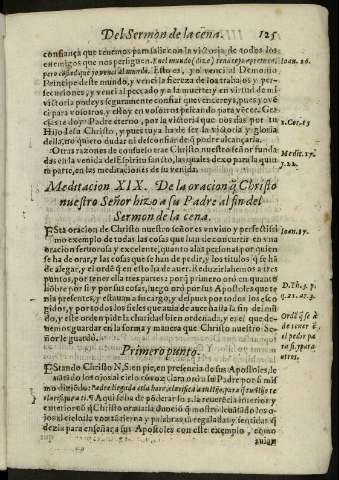 Del Sermon de la cena. 125
confiança que tenemos para salir con la victoria de todos los
enemigos que nos persiguen. En el mundo (dize) tendreys apretura, Ioan. 16.
pero confiad que yo venci al mundo. Esto es, yo venci al Demonio
Principe deste mundo, y venci la fiereza de los trabajos y per-
secuciones, y venci al peccado y a la muerte y en virtud de mi
victoria podeys seguramente confiar que vencereys, pues vencí
yo para vosotros, y estoy en vosotros peleando para vencer. Gra-
cias te doy Padre eterno, por la victoria que nos das por tu 1. Cor. 15
Hijo Iesu Christo, y pues tu ya has de ser la victoria y gloria
della, no quiero dudar ni desconfiar de q̃ podre alcançarla.
Otras razones de consuelo trae Christo nuestro Señor funda
das en la venida del Espiritu santo, las quales dexo para la quin Medit. 27.
ta parte, en las meditaciones de su venida. y. 22.
Meditacion XIX. De la oracion q̃ Christo
nuestro Señor hizo a su Padre al fin del
Sermon de la cena.
Esta oracion de Christo nuestro señor es vn vivo y perfectissi Ioan. 17.
mo exemplo de todas las cosas que han de concurrir en vna
oracion fervorosa y excelente, quanto a las personas por quien
se ha de orar, y las cosas que se han de pedir, y los titulos q̃ se hã
de alegar, y el ordẽ q̃ en esto ha de aver. Reduzirla hemos a tres
puntos, por tener ella tres partes: porq̃ primero oró en quanto D. Th. 3. p.
hõbre por si y por sus cosas, luego oró por sus Apostoles que te q. 21. ar. 3.
nia presentes, y estavan a su cargo, y despues por todos los esco
gidos, y por todos los fieles que avia de aver hasta la fin del mũ
do, y este orden pide la charidad bien ordenada, y es el que de- Ordẽ q̃ se à
vemos guardar en la forma y manera que Christo nuestro Se- de tener ẽ,
ñor le guardó. el pedir pa
Primero punto. ra si, y para
otros.
Estando Christo N. S. en pie, en presencia de sus Apostoles, le
vantado los ojos al cielo con voz clara oró a su Padre por si mis
mo diziẽdo: Padre llegada es la hora, clarifica a tu Hijo, para q̃ tu Hijo te
clarifique a ti. ¶ Aqui se ha de põderar lo 1. la reverẽcia interior y
exterior cõ q̃ Christo orava la devociõ q̃ mostró levãtãdo los o-
jos al cielo la voz tierna y palabras tã regaladas y sentidas q̃
dezia para enseñar a sus Apostoles con este exemplo, como